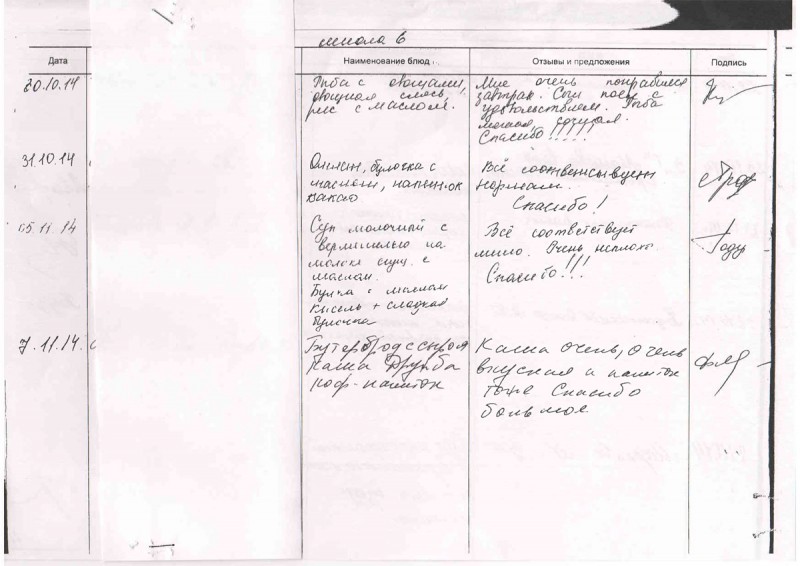 школа 6
Дата
Наименование блюд
Отзывы и предложения
Подпись
30.10.14
Рыба с овощами,
овощная смесь,
рис с маслом.
Мне очень понравился
завтрак. Сын поел с
удовольствием. Рыба
сочная.
Спасибо!!!!!
31.10.14
Омлет, булочка с
маслом, напиток
какао
Всё соответствует
нормам.
Спасибо!
05.11.14
Суп молочный с
вермишелью на
молоке сгущ. с
маслом.
Булка с маслом
Кисель + сладкая
булочка
Всё соответствует
меню. Очень неплохо
Спасибо!!!
7.11.14.
Бутерброд с сыром
каша Дружба
коф-напиток
Каша очень, очень
вкусная и напиток
тоже Спасибо
большое